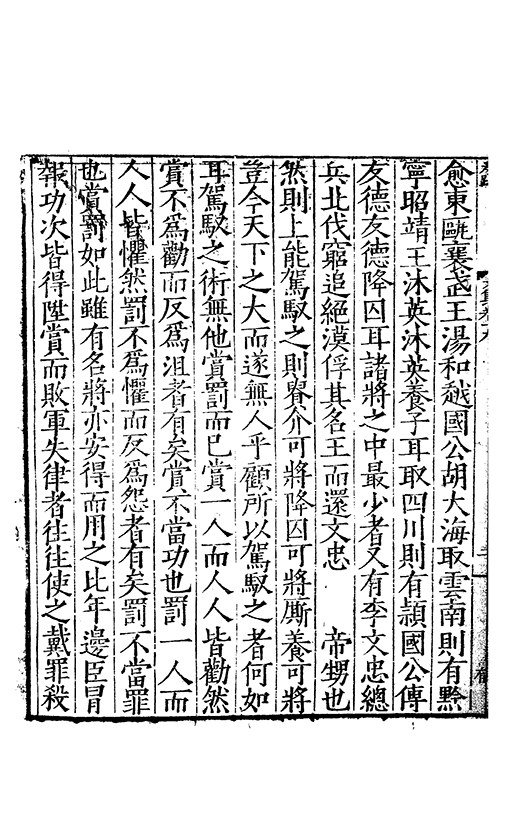 愈東甌襄武王湯和越國公胡大海取雲南則有黔
寧昭靖王沐英沐英養子耳取四川則有潁國公傅
友德友德降囚耳諸將之中最少者又有李文忠總
兵北伐窮追絕漠俘其名王而還文忠　帝甥也
然則上能駕馭之則畧介可將降囚可將廝養可將
豈今天下之大而遂無人乎顧所以駕馭之者何如
耳駕馭之術無他賞罰而已賞一人而人人皆勸然
賞不爲勸而反爲沮者有矣賞不當功也罰一人而
人人皆懼然罰不爲懼而反爲怨者有矣罰不當罪
也賞罰如此雖有名將亦安得而用之比年邊臣冒
報功次皆得陞賞而敗軍失律者往往使之戴罪殺